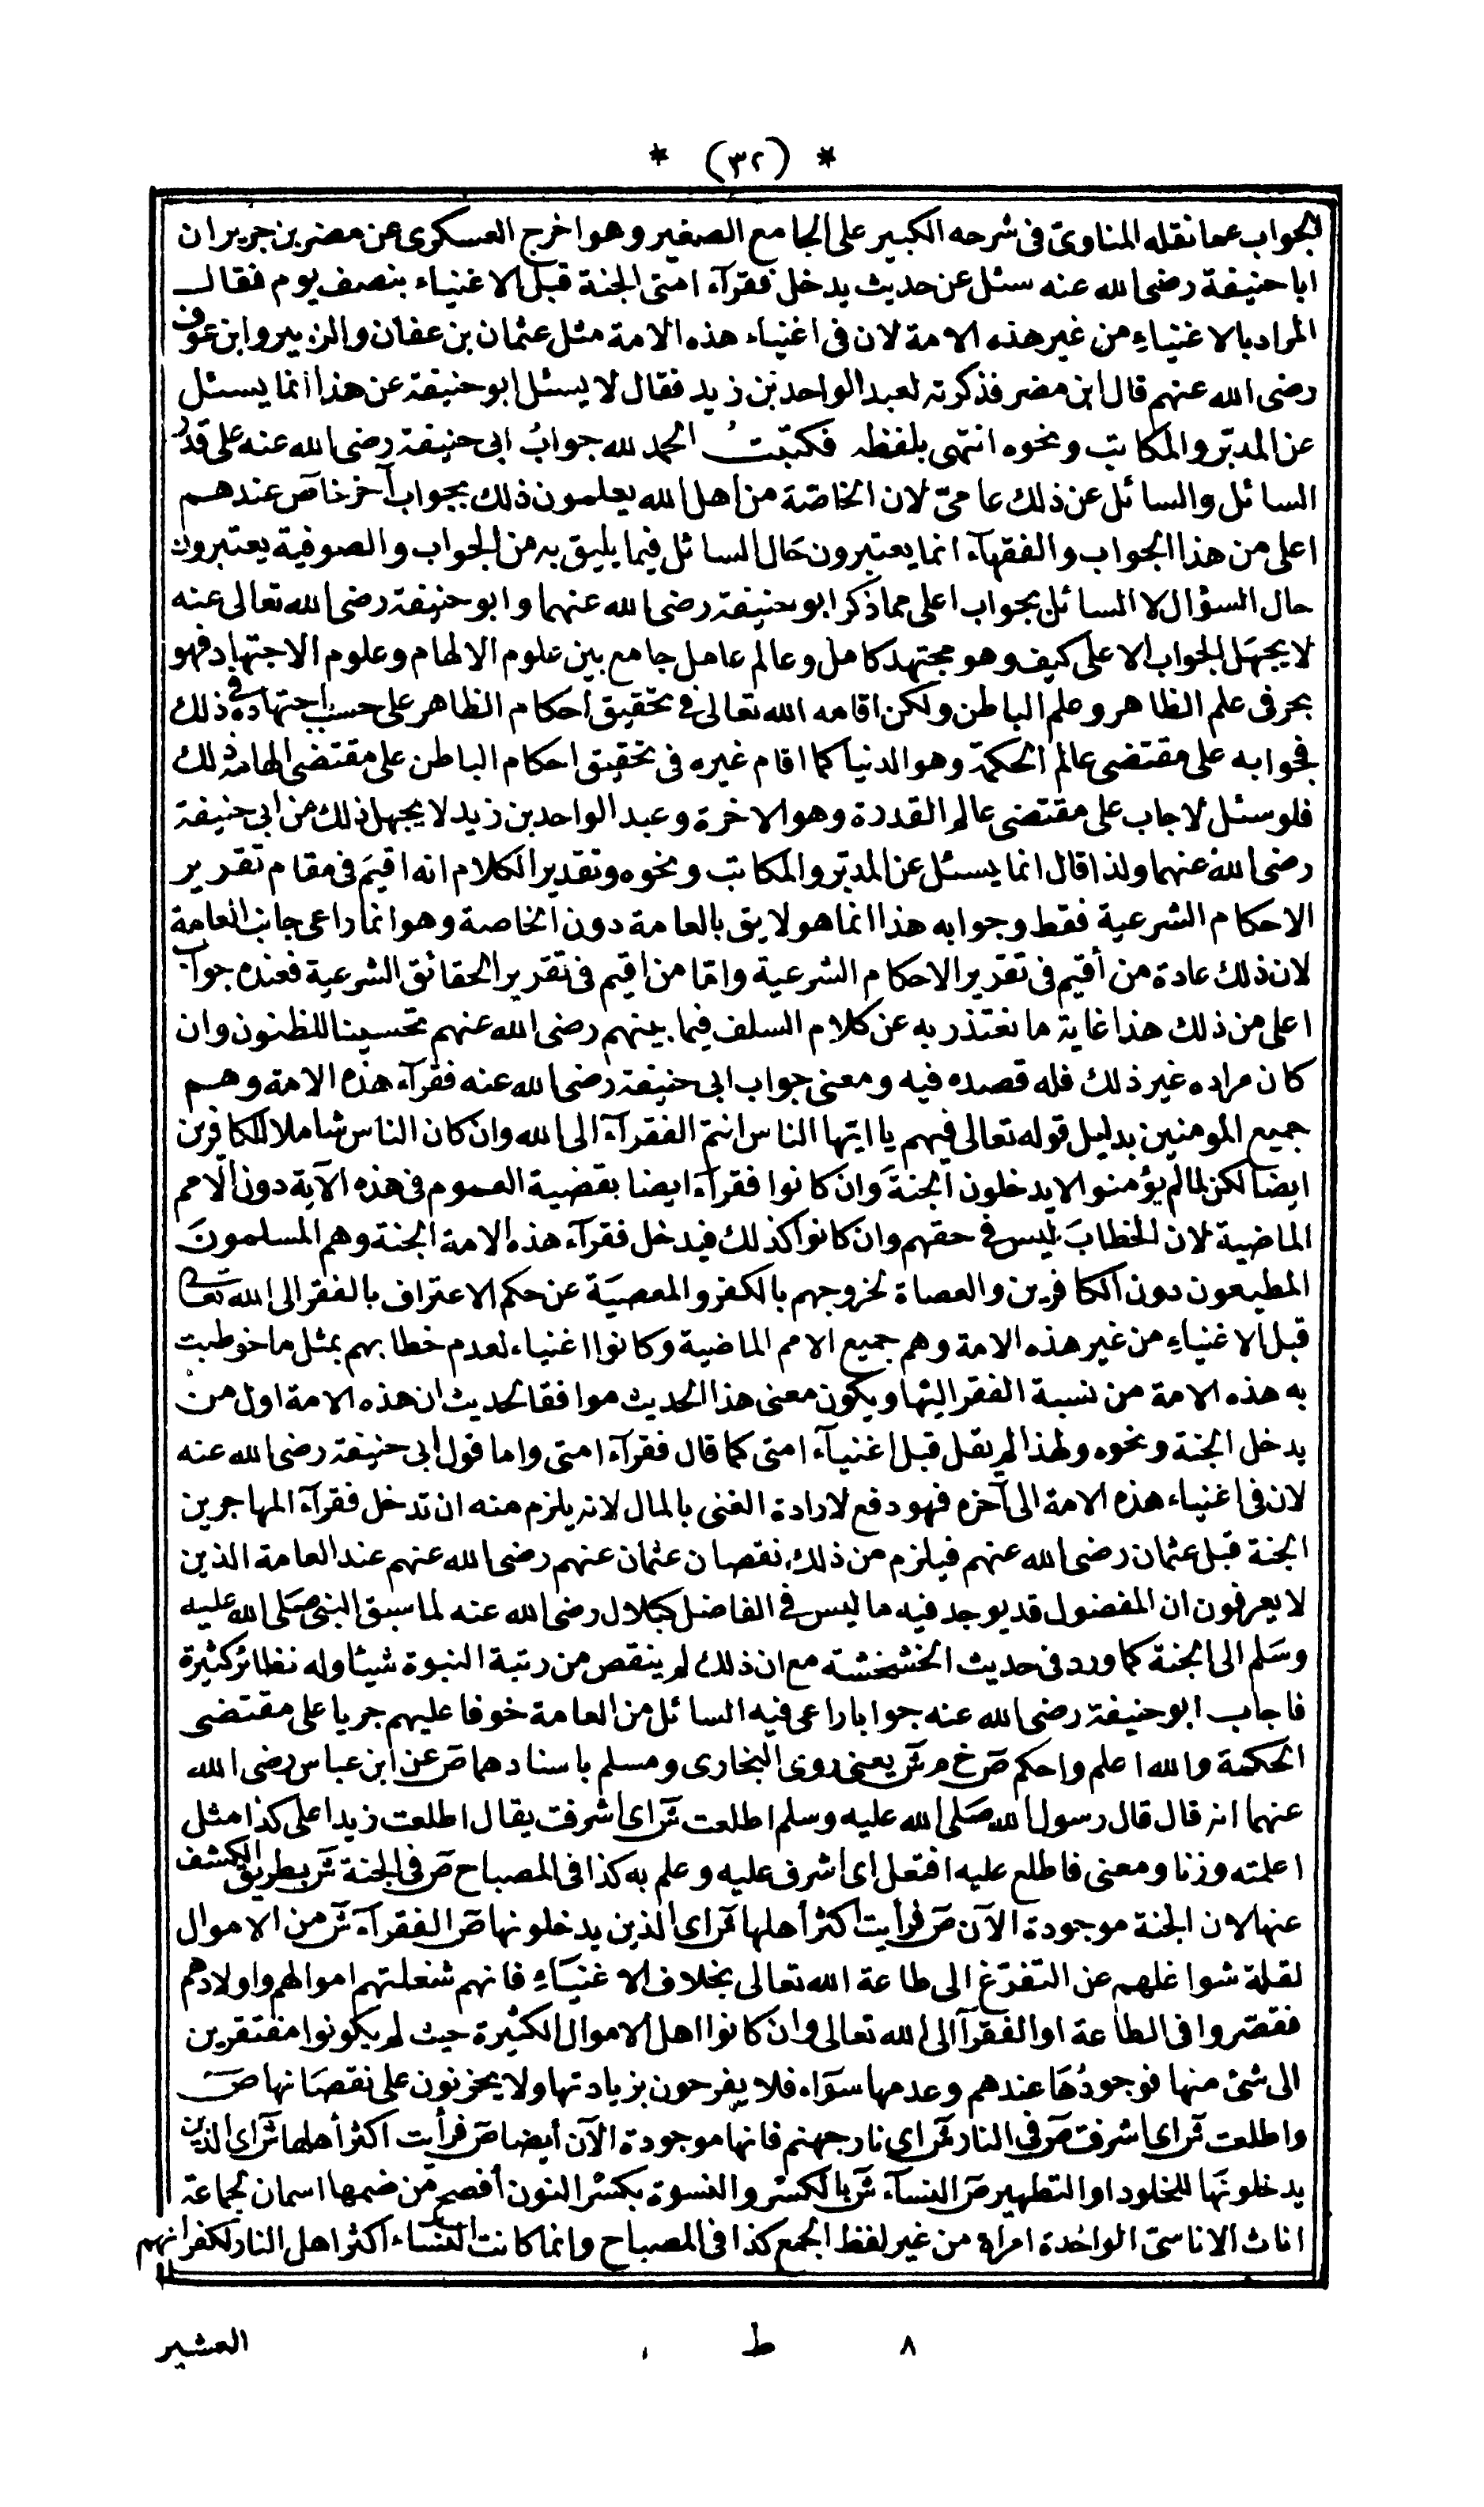 * (٣٢) *
الجواب عما نقله المناوى فى شرحه الكبير على الجامع الصغير وهو اخرج العسكرى عن مضر بن جرير ان
ابا حنيفة رضى الله عنه سئل عن حديث يدخل فقرآء امتى الجنة قبل الاغنياء بنصف يوم فقال
المراد بالاغنياءِ من غير هذه الامة لان فى اغنياء هذه الامة مثل عثمان بن عفان والزبير وابن عوف
رضى الله عنهم قال ابن مضر فذكرته لعبد الواحد بن زيد فقال لا يسئل ابو حنيفة عن هذا انما يسئل
عن المدبّر والمكاتب ونحوه انتهى بلفظه فكتبتُ الحمد لله جوابُ ابى حنيفة رضى الله عنه على قدْر
السائل والسائل عن ذلك عامىّ لان الخاصّة من اهل الله يعلمون ذلك بجواب آخر خاصّ عندهم
اعلى من هذا الجواب والفقهآء انما يعتبرون حَال السائل فيما يليق به من الجواب والصوفية يعتبرون
حال السؤال لا السائل بجواب اعلى مما ذكر ابو حنيفة رضى الله عنهما وابو حنيفة رضى الله تعالى عنه
لا يجهَل الجواب الاعلى كيف وهو مجتهد كامل وعالم عامل جامع بين علوم الالهام وعلوم الاجتهاد فهو
بحر فى علم الظاهر وعلم الباطن ولكن اقامه الله تعالى فى تحقيق احكام الظاهر على حسب اجتهاده فى ذلك
فجوابه على مقتضى عالم الحكمة وهو الدنيا كما اقام غيره فى تحقيق احكام الباطن على مقتضى الهامه فى ذلك
فلو سئل لاجاب على مقتضى عالم القدرة وهو الاخرة وعبد الواحد بن زيد لا يجهل ذلك من ابى حنيفة
رضى الله عنهما ولذا قال انما يسئل عن المدبّر والمكاتب ونحوه وتقدير الكلام انه اقيمَ فى مقام تقرير
الاحكام الشرعية فقط وجوابه هذا انما هو لايق بالعامة دون الخاصة وهو انما راعى جانب العامة
لان ذلك عادة من أقيم فى تقرير الاحكام الشرعية وامّا من اقيم فى تقرير الحقائق الشرعية فعنده جواب
اعلى من ذلك هذا غاية ما نعتذر به عن كلام السلف فيما بينهم رضى الله عنهم تحسينا للظنون وان
كان مراده غير ذلك فله قصده فيه ومعنى جواب ابى حنيفة رضى الله عنه فقرآء هذه الامة وهم
جميع المومنين بدليل قوله تعالى فيهم يا ايّها الناس انتم الفقرآء الى الله وان كان الناس شاملا للكافرين
ايضا لكن لما لم يؤمنوا لا يدخلون الجنةَ وان كانوا فقرآء ايضا بقضية العموم فى هذه الآية دون الامم
الماضية لان الخطابَ ليس فى حقهم وان كانوا كذلك فيدخل فقرآء هذه الامة الجنة وهم المسلمونَ
المطيعون دون الكافرين والعصاة لخروجهم بالكفر والمعصيَة عن حكم الاعتراف بالفقر الى الله تعالى
قبل الاغنياءِ من غير هذه الامة وهم جميع الامم الماضية وكانوا اغنياء لعدم خطابهم بمثل ما خوطبت
به هذه الامة من نسبة الفقر اليْها ويكون معنى هذا الحديث موافقا لحديث ان هذه الامة اول من
يدخل الجنة ونحوه ولهذا لم يقل قبل اغنيآء امتى كما قال فقرآء امتى واما قول ابى حنيفة رضى الله عنه
لان فى اغنياء هذه الامة الى آخره فهو دفع لارادة الغنى بالمال لانه يلزم منه ان تدخل فقرآء المهاجرين
الجنة قبل عثمان رضى الله عنهم فيلزم من ذلك نقصان عثمان عنهم رضى الله عنهم عند العامة الذين
لا يعرفون ان المفضول قد يوجد فيه ما ليس فى الفاضل كبلال رضى الله عنه لما سبق النبى صَلى الله عليه
وسَلم الى الجنة كما ورد فى حديث الخشخشة مع ان ذلك لم ينقص من رتبة النبوة شيئا وله نظائر كثيرة
فاجاب ابو حنيفة رضى الله عنه جوابا راعى فيه السائل من العامة خوفا عليهم جريا على مقتضى
الحكمة والله اعلم واحكم صّ خ م شّ يعنى روى البخارى ومسلم باسنادهما صّ عن ابن عباس رضى الله
عنهما انه قال قال رسول الله صَلى الله عليه وسلم اطلعت شّ اى اشرفت يقال اطلعت زيدا على كذا مثل
اعلمته وزنا ومعنى فاطلع عليه افتعل اى اشرف عليه وعلم به كذا فى المصباح صّ فى الجنة شّ بطريق الكشف
عنها لان الجنة موجودة الآن صّ فرأيت اكثر أهلها شّ اى الذين يدخلونها صّ الفقرآء شّ من الاموال
لقلة شواغلهم عن التفرّغ الى طاعة الله تعالى بخلاف الاغنيَاءِ فانهم شغلتهم اموالهم واولادهم
فقصّروا فى الطاعة او الفقرآ الى الله تعالى وان كانوا اهل الاموال الكثيرة حيث لم يكونوا مفتقرين
الى شئ منها فوجودُهَا عندهم وعدمها سوَآء فلا يفرحون بزيادتها ولا يحزنون على نقصَانها صّ
واطلعت شّ اى اشرفت صّ فى النار شّ اى نار جهنم فانها موجودة الآن أيضا صّ فرأيت اكثر أهلها شّ اى الذين
يدخلونهَا للخلود او التطهير صّ النسآء شّ بالكسْر والنسوة بكسْر النون أفصح من ضمها اسمان لجماعة
اناث الاناسىّ الواحدة امراة من غير لفظ الجمع كذا فى المصباح وانما كانت النساء اكثر اهل النار لكفرانهم
٨ ط العشير